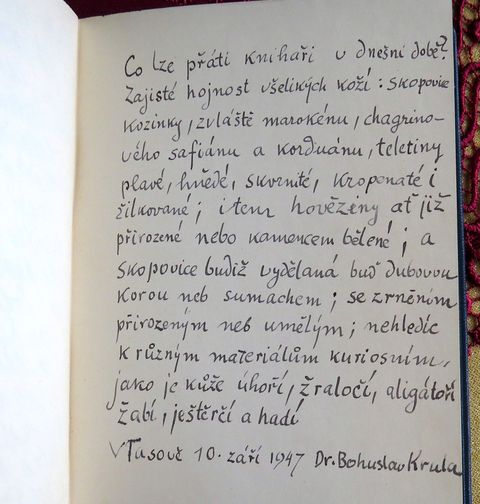 Co lze přáti knihaři v dnešní době?
Zajisté hojnost všelikých koží: skopovice
kozinky, zvláště marokénu, chagrino-
vého safiánu a korduánu, teletiny
plavé, hnědé, skvrnité, kropenaté i
žilkované; item hověziny ať již
přirozené nebo kamencem bělené; a
skopovice budiž vydělaná buď dubovou
korou neb sumachem; se zrněním
přirozeným neb umělým; nehledíc
k různým materiálům kuriosním,
jako je kůže úhoří, žraločí, aligátoří
žabí, ještěrčí a hadí
V Tasově 10. září 1947 Dr. Bohuslav Krula